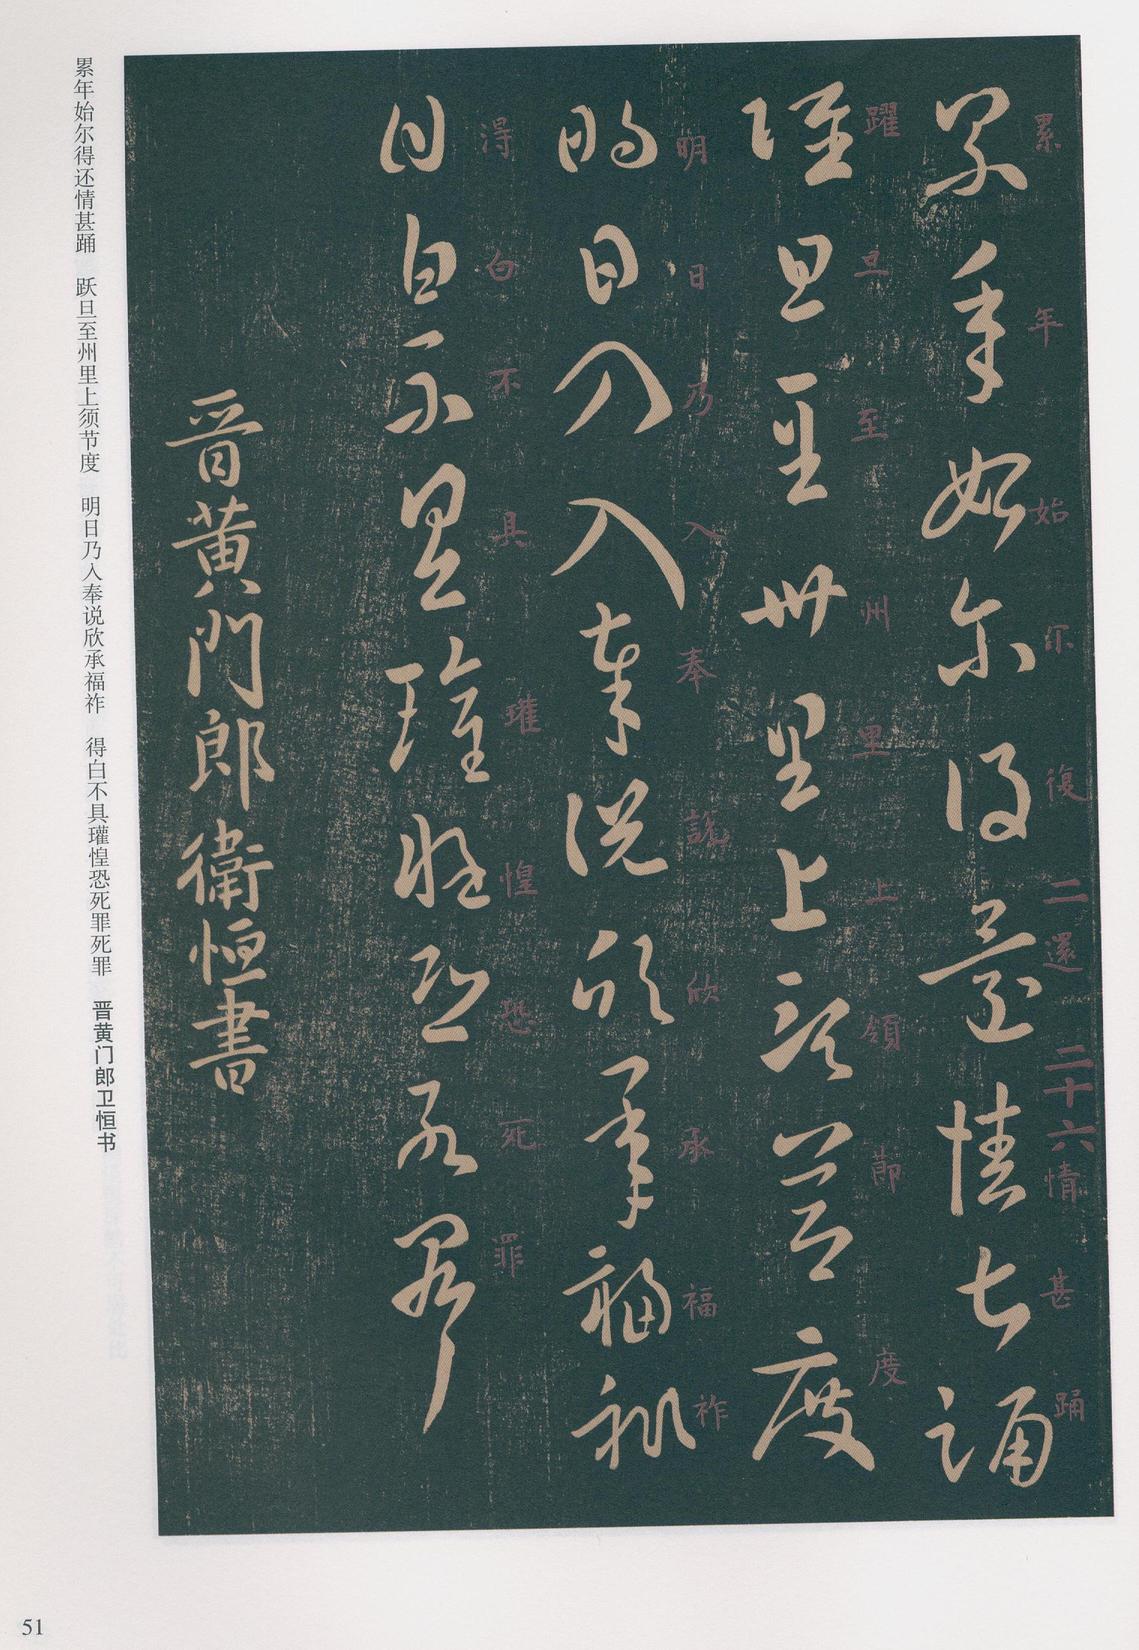 累年始尔得还情甚踊
躍旦至州里上須節度
明日乃入奉說欣承福祚
得白不具瓘惶恐死罪
晋黄門郎衛恒書
累年始尔復二還二十六情甚踊
躍旦至州里上領節度
明日乃入奉說欣承福祚
淂白不具瓘惶恐死罪
累年始尔得还情甚踊　跃旦至州里上须节度　明日乃入奉说欣承福祚　得白不具瓘惶恐死罪死罪　晋黄门郎卫恒书
51